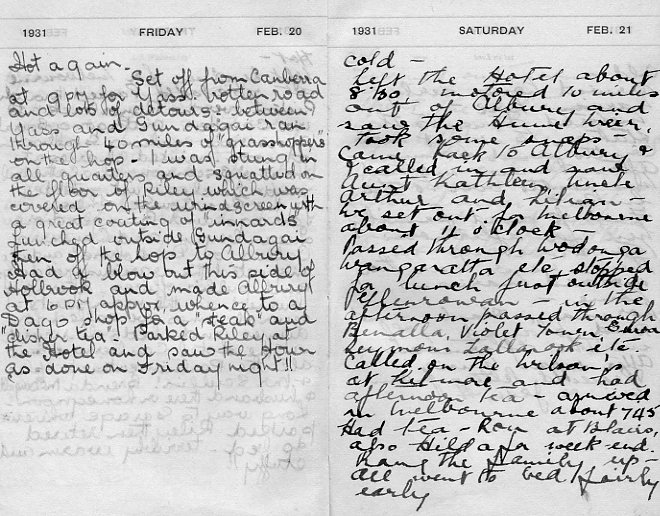 1931 FRIDAY FEB. 20
Hot again.
Set off from Canberra
at 9 PM for Yass. rotten road
and lots of detours - between
Yass and Gundagai ran
through 40 miles of "grasshoppers"
on the hop - I was stung in
all quarters and squatted on
the floor of Riley which was
covered on the windscreen with
a great coating of "innards"
Lunched outside Gundagai
then of the hop to Albury
Had a blow out this side of
Holbrook and made Albury
at 6 PM approx, whence to a
Dago shop for a "steak" and
"dinner tea" - Parked Riley at
the Hotel and saw the
as done on Friday night!!
1931 SATURDAY FEB. 21
cold -
Left the Hotel about
8.30 motored 10 miles
out of Albury and
saw the Hume Weir,
took some snaps -
Came back to Albury &
called in and saw
Aunt Kathleen, uncle
Arthur and -
we set out for Melbourne
about 11 o'clock -
Passed through Wodonga
Wangaratta etc, stopped
for lunch just outside
Glenrowan - in the
afternoon passed through
Benalla, Violet Town, Euroa
Seymour Tallarook etc.
Called on the Wilsons
at Kilmore and had
afternoon tea - arrived
in Melbourne about 7 45
Had tea - Ron at Blairs,
also Hilda for week end.
Rang the family up -
all went to bed fairly
early